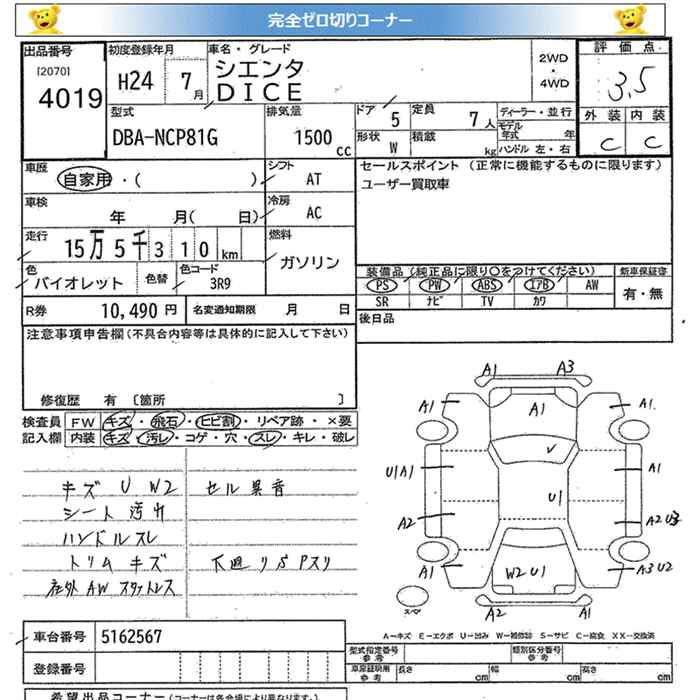 完全ゼロ切りコーナー
出品番号 初度登録年月 車名・グレード 評価点
[2070] 4019 H24 7月 シエンタ DICE 2WD・4WD 3.5
型式 排気量 ドア 5 定員 7人 ディーラー・並行 外装 内装
DBA-NCP81G 1500cc 形状 W 積載 kg モデル年式 年 ハンドル 左・右 C C
車歴 シフト セールスポイント (正常に機能するものに限ります)
自家用・( ) AT ユーザー買取車
車検 冷房
年 月( 日) AC
走行 燃料
15万5千310km ガソリン
色 色替 色コード 装備品(純正品に限り○をつけてください) 新車保証書
バイオレット 3R9 PS PW ABS エアB AW 有・無
SR ナビ TV カワ
R券 10,490円 名変通知期限 月 日 後日品
注意事項申告欄(不具合内容等は具体的に記入して下さい)
修復歴 有 〔箇所 〕
検査員 FW キズ・飛石・ヒビ割・リペア跡・×要
記入欄 内装 キズ・汚レ・コゲ・穴・スレ・キレ・破レ
キズ U W2 セル異音
シート汚れ
ハンドルスレ
トリムキズ 下廻リSPスリ
社外AWスタットレス
A1 A3
A1 A1 A1
V
U1A1 U1 A1
A2 A2 U3
A1 W2U1 A3U2
スペア A2 A1
A-キズ E-エクボ U-凹み W-補修跡 S-サビ C-腐食 XX-交換済
車台番号 5162567
型式指定番号 参考 類別区分番号 参考
登録番号
車庫証明用 参考 長さ cm 幅 cm 高さ cm
希望出品コーナー(コーナーは各会場により異なります。)